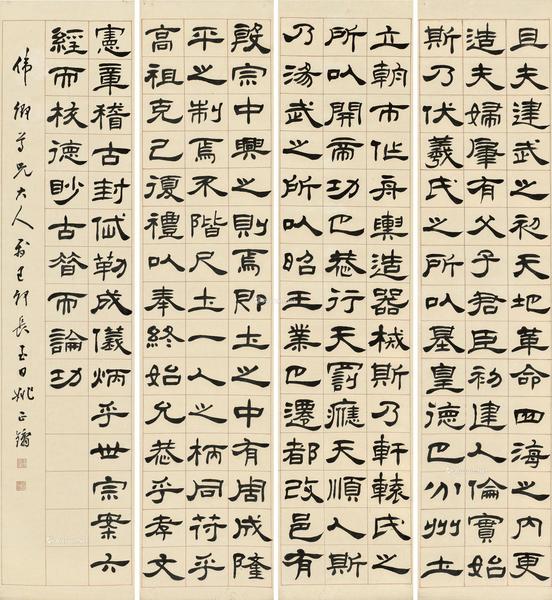 且夫建武之初天地革命四海之内更
造夫婦肇有父子君臣初建人倫實始
斯乃伏羲氏之所以基皇德也分州土
立朝市作舟輿造器械斯乃軒轅氏之
所以開帝功也恭行天罰應天順人斯
乃湯武之所以昭王業也遷都改邑有
殷宗中興之則焉即土之中有周成隆
平之制焉不階尺土一人之柄同符乎
高祖克己復禮以奉終始允恭乎孝文
憲章稽古封岱勒成儀炳乎世宗案六
經而核德眇古昔而論功
偉卿尊兄大人己卯長至日姚正鏞